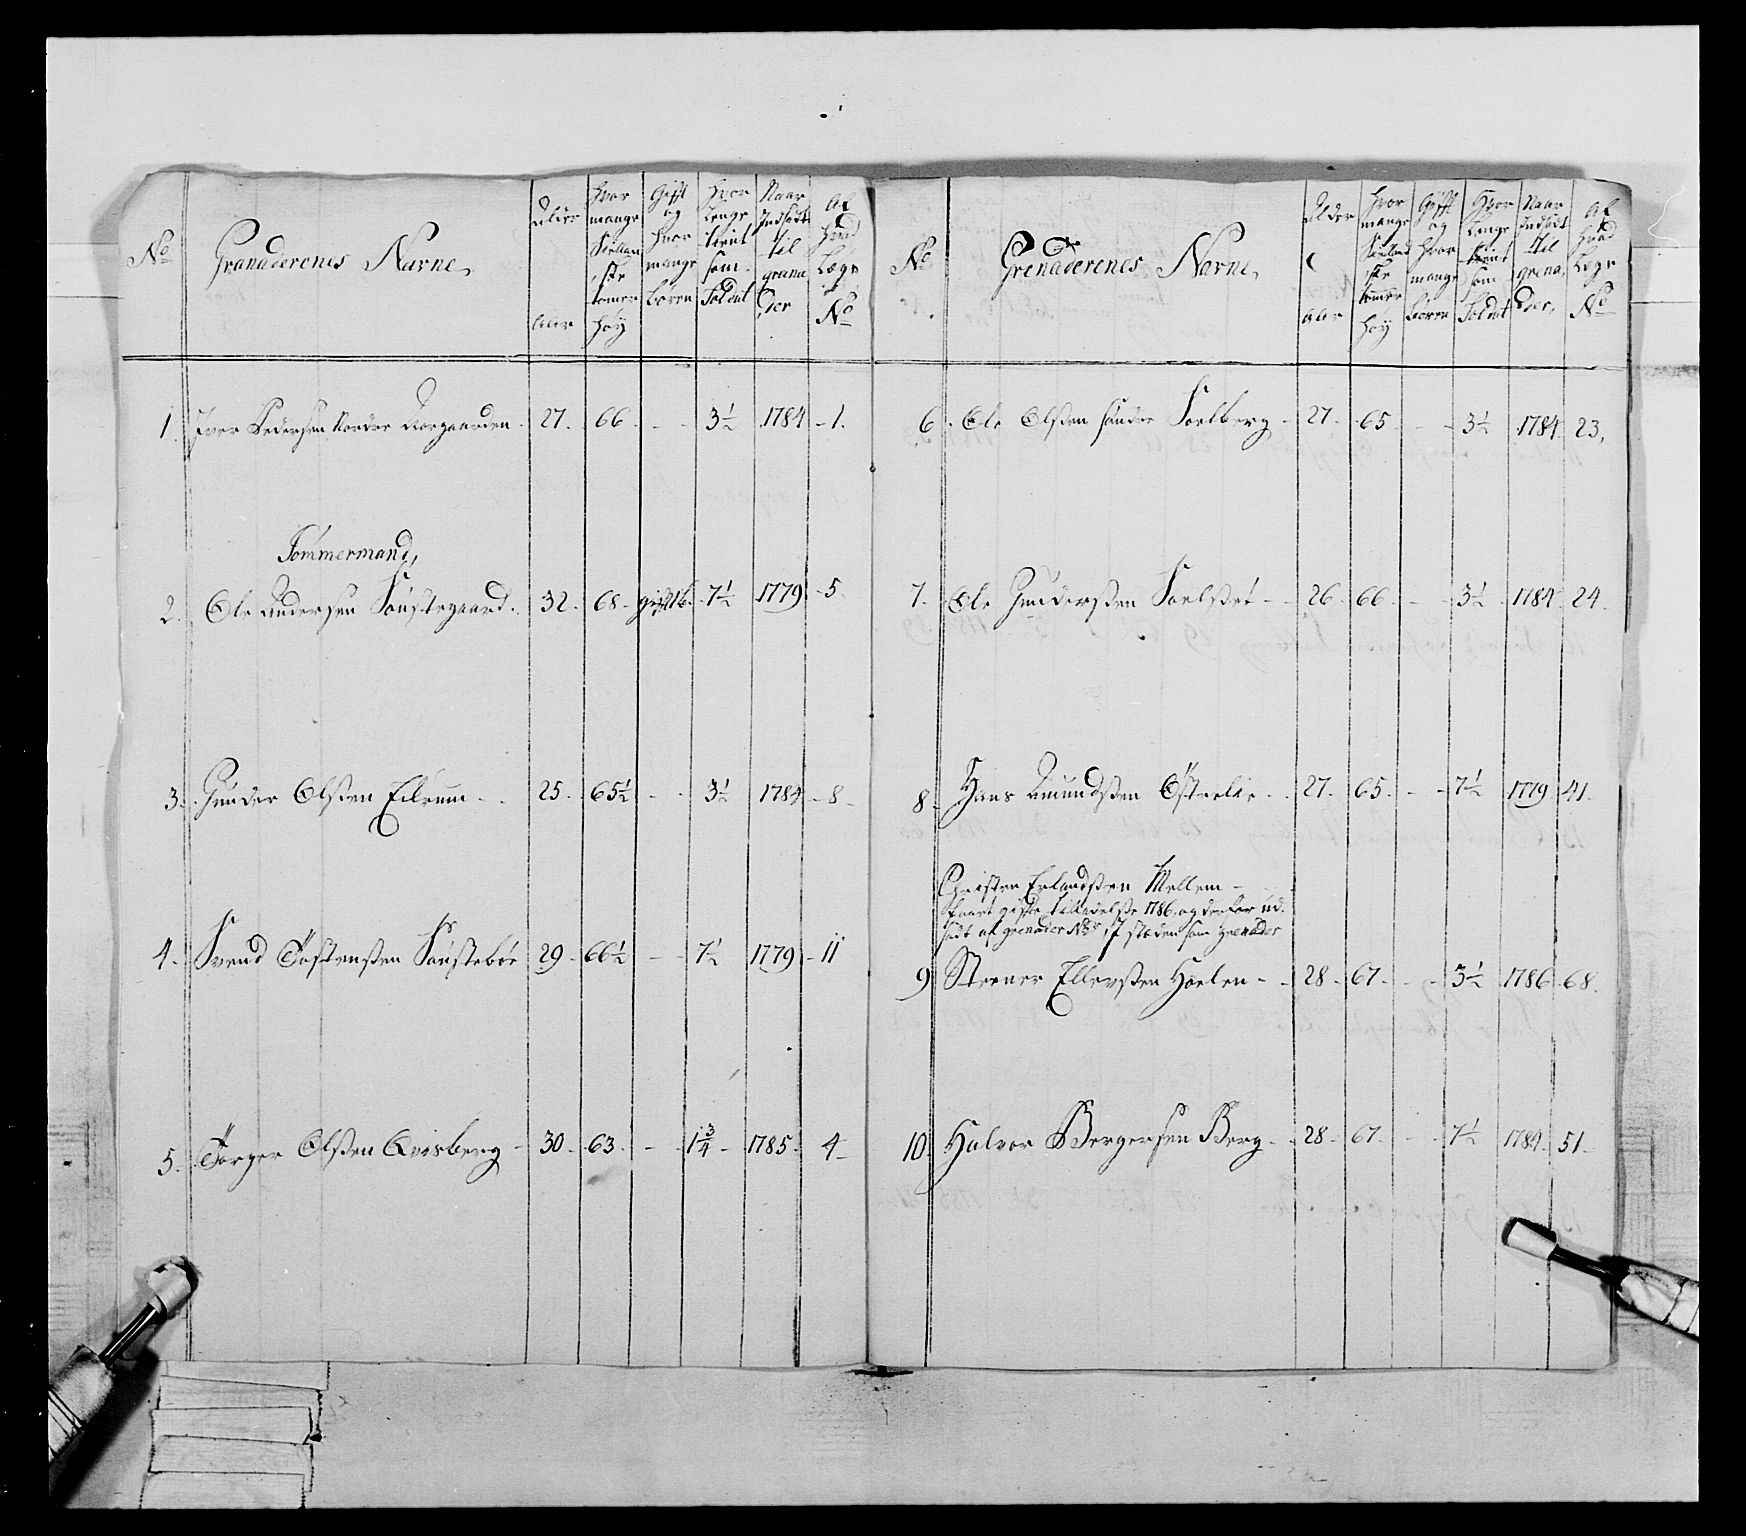 No
Granaderenes Navne,
Alder
Aar
Hvor mange Siellandske tomer høy
Gift og hvor mange børen
Hvor Lenge tient som Soldat
Naar Indsadt til grenader
Af hvad Lægt No
1. Iver Pedersen Nordre Aorgaarden. 27. 66. - - 3½ 1784 - 1.
Tømmermand,
2. Ole Andersen Søustegaard. 32. 68. gift 1 b. 7½ 1779 - 5.
3. Gunder Olsen Eidrum - . 25. 65½ - - 3½ 1784 - 8 -
4. Svend Tostensen Søustebøe 29. 66½ - - 7½ 1779 - 11
5. Torger Olsen Qvisberg - 30. 63. - 1¾ - 1785. 4 -
No
Grenaderenes Navne,
Alder
Aar
Hvor mange Siellandske tomer høy
Gifft og hvor mange børen
Hvor Lenge tient som Soldat
Naar Indsadt til grenader,
Af hvad Lægt No
6. Ole Olsen søndre Soelberg - 27. 65 - - 3½ 1784 23.
7. Ole Gundersen - - 26. 66. - - 3½ 1784. 24.
8. Hans Amundsen Østrelie. . 27. 65. - - 7½ 1779 41.
Christen Erlandsen Mellem -
gifte tilladelse 1786. og derfor ud.
sadt af grenader i steden som grenader
9 Steener Ellevsen Hoelen - - 28. 67. - - 3½ 1786. 68.
10. Halvor Bergersen Berg - . 28. 67. - - 7½ 1784. 51.